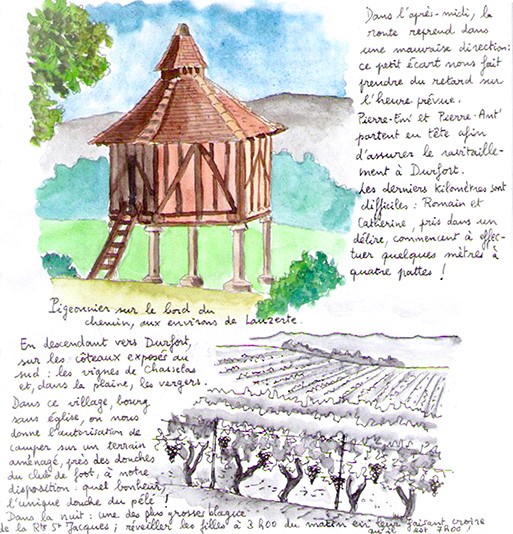 Dans l'après-midi, la
route reprend dans
une mauvaise direction :
ce petit écart nous fait
prendre du retard sur
l'heure prévue.
Pierre-Em' et Pierre-Ant'
partent en tête afin
d'assurer le ravitaille-
ment à Durfort.
Les derniers kilomètres sont
difficiles : Romain et
Catherine, pris dans un
délire, commencent à effec-
tuer quelques mètres à
quatre pattes !
Pigeonnier sur le bord du
chemin, aux environs de Lauzerte.
En descendant vers Durfort,
sur les côteaux exposés au
sud : les vignes de Chasselas
et, dans la plaine, les vergers.
Dans ce village, bourg
sans église, on nous
donne l'autorisation de
camper sur un terrain
aménagé, près des douches
du club de foot, à notre
disposition : quel bonheur,
l'unique douche du pélé !
Dans la nuit : une des plus grosses blagues
de la Rte St Jacques ; réveiller les filles à 3h00 du matin en leur faisant croire
qu'il est 7h00 !